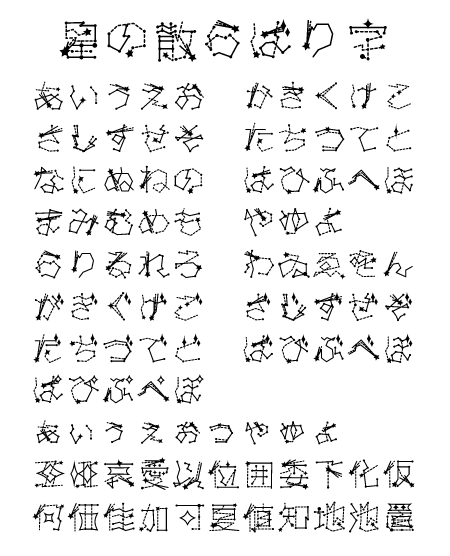 星の散らばり字
あいうえお かきくけこ
さしすせそ たちつてと
なにぬねの はひふへほ
まみむめも やゆよ
らりるれろ わゐゑをん
がぎぐげご ざじずぜぞ
だぢづでど ばびぶべぼ
ぱぴぷぺぽ
ぁぃぅぇぉっゃゅょ
亜唖哀愛以位囲委下化仮
何価佳加可夏値知地池置